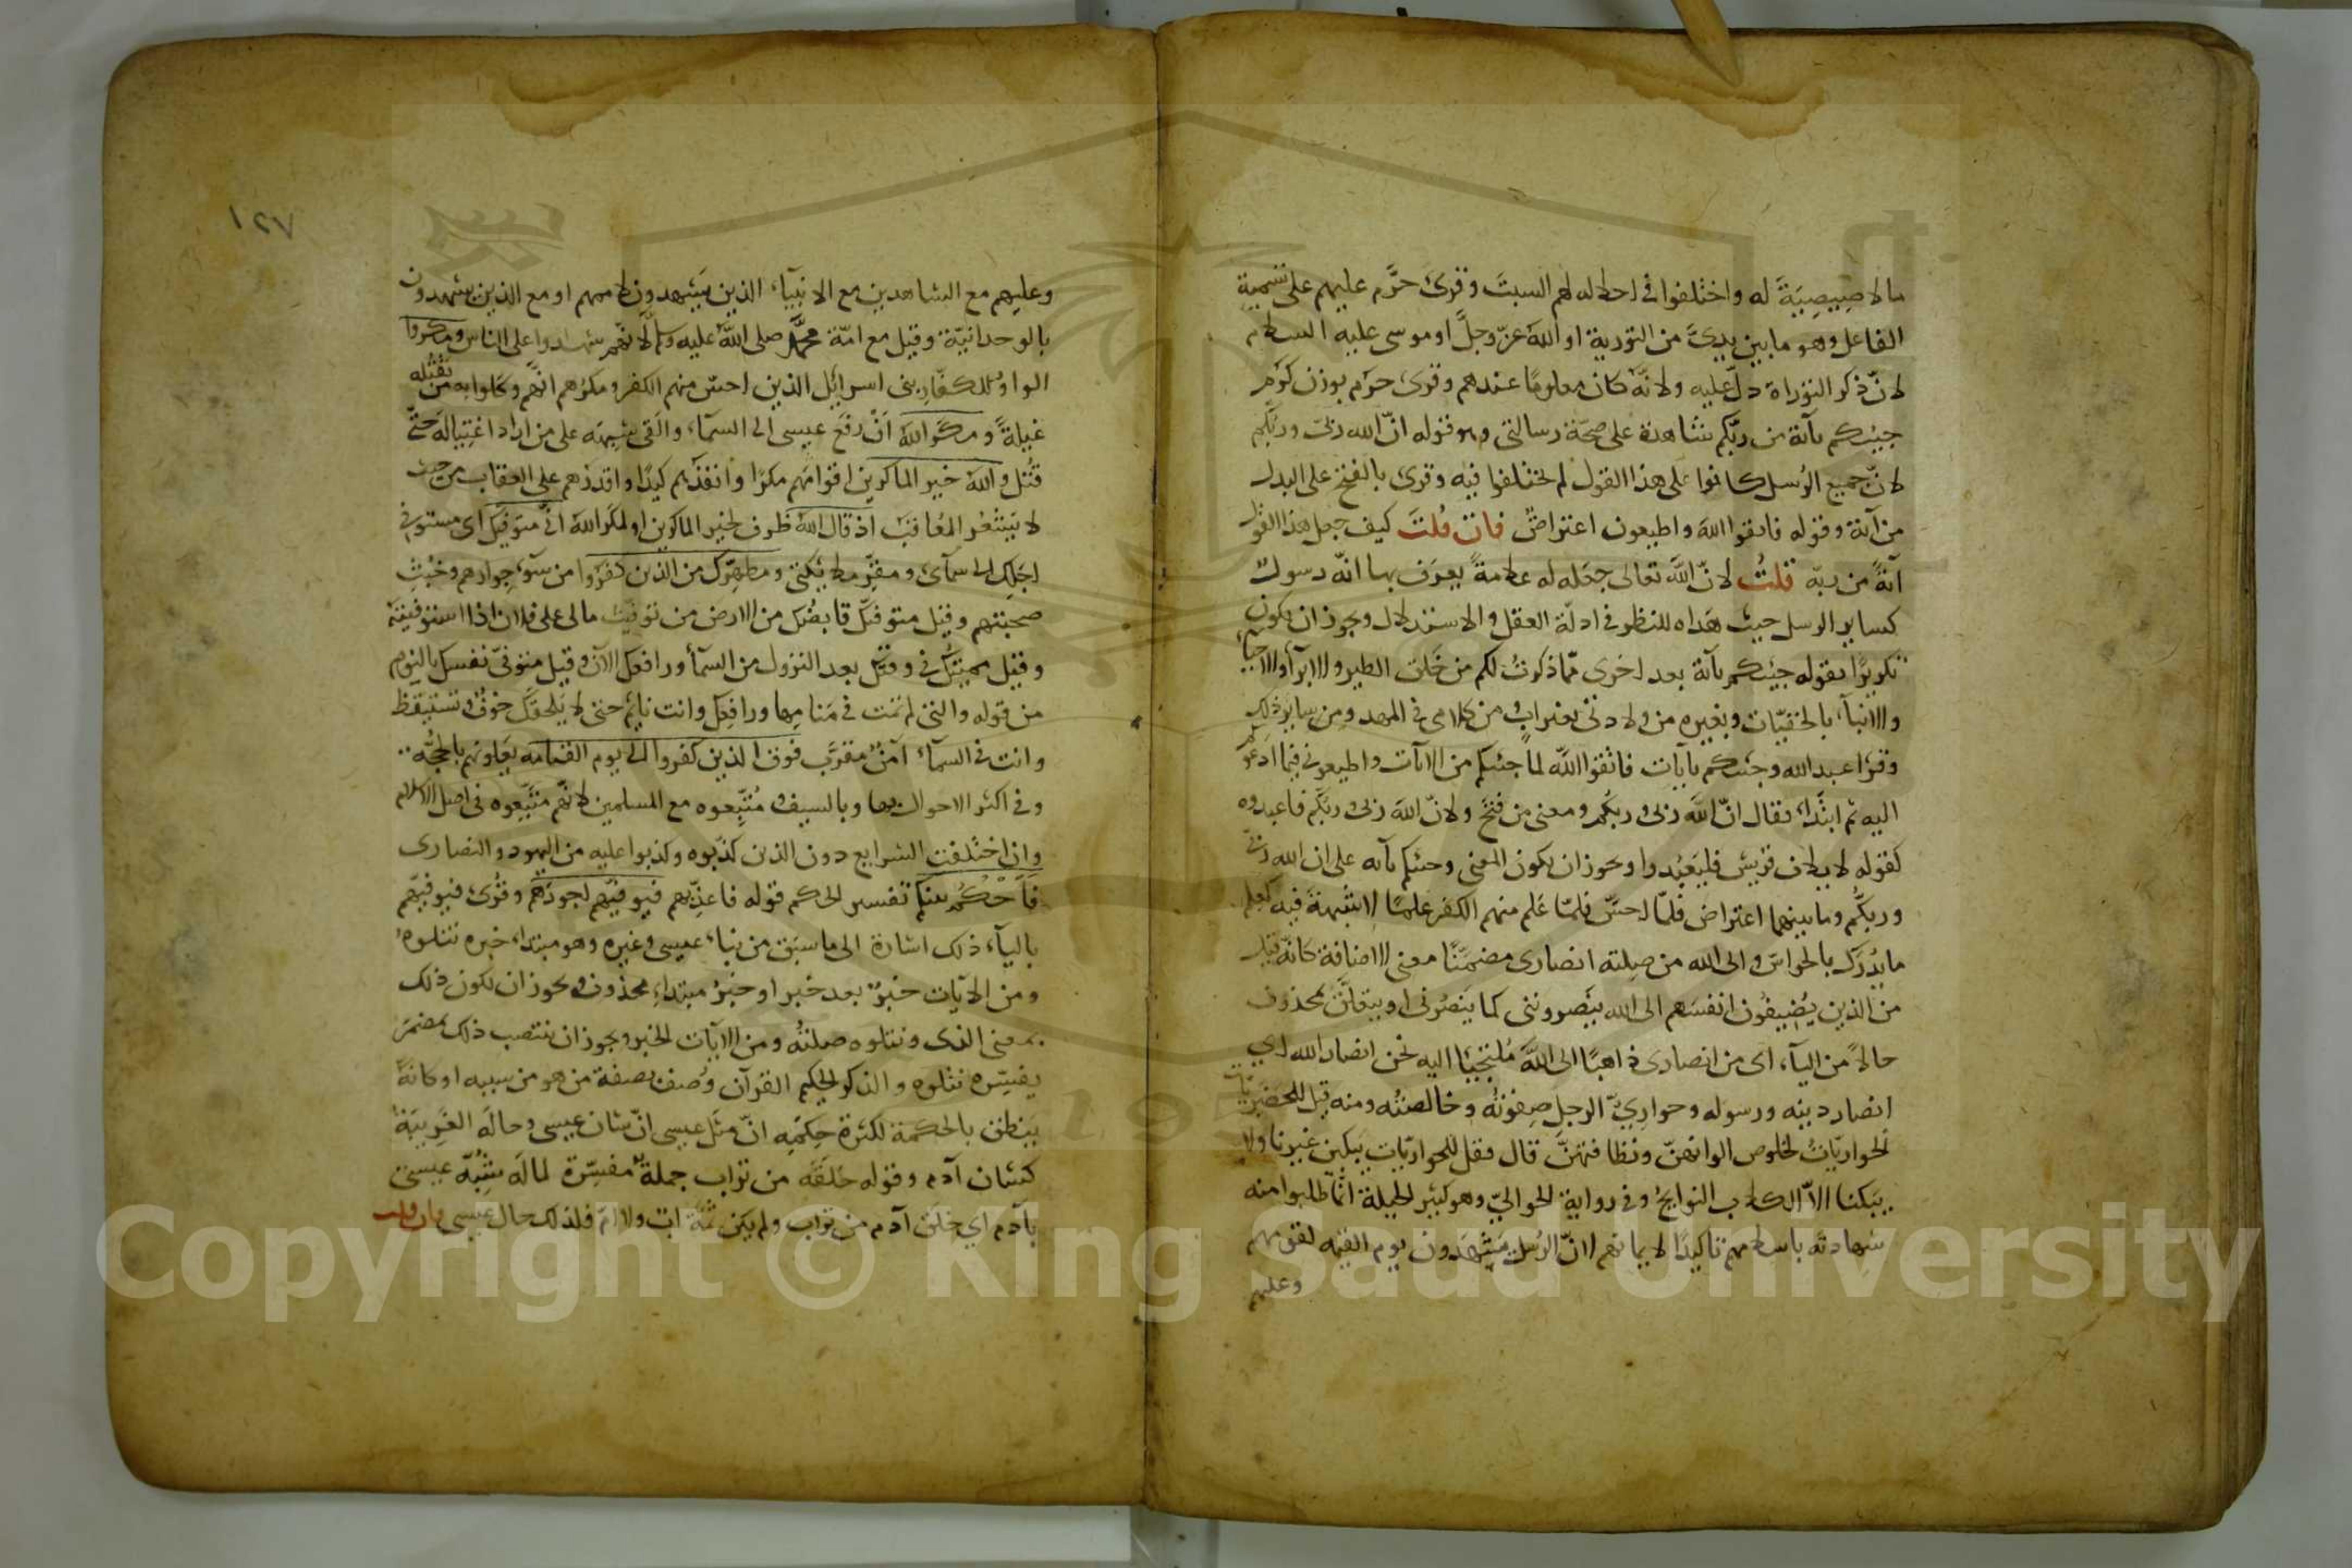 ما لا صيصية له واختلفوا في احلاله لهم السبت وقرئ حرَّم عليهم على تسمية
الفاعل وهو ما بين يديَّ من التورية او الله عزّ وجلّ او موسى عليه السلام
لانّ ذكر التوراة دلّ عليه ولانّه كان معلومًا عندهم وقرئ حرم بوزن كرم
جيتكم بآية من ربّكم شاهدة على صحّة رسالتي وهو قوله انّ الله ربّي وربّكم
لانّ جميع الرُسل كانوا على هذا القول لم يختلفوا فيه وقرئ بالفتح على البدل
من آية وقوله فاتقوا الله واطيعون اعتراضٌ فان قلتَ كيف جعل هذا القول
آيةً من ربّه قلتُ لانّ الله تعالى جعله له علامةً يعرف بها انّه رسول
كساير الرسل حيث هداه للنظر في ادلّة العقل والاستدلال ويجوز ان يكون
تكريرًا لقوله جيتكم بآية بعد اخرى ممّا ذكرتُ لكم من خلق الطير والابرآ والاحيآء
والانبآء بالخفيّات وبغيره من ولادتي بغير اب من كلامي في المهد ومن ساير ذلك
وقرأ عبد الله وجيتكم بآيات فاتقوا الله لما جئتكم من الآيات واطيعوني فيما ادعوكم
اليه ثم ابتدأ فقال انّ الله ربّي وربّكم ومعنى من فتح ولانّ الله ربّي وربّكم فاعبدوه
كقوله لايلاف قريش فليعبُدوا ويجوز ان يكون المعنى وجئتكم بآية على ان الله ربّي
وربّكم وما بينهما اعتراض فلمّا احسّ فلمّا علم منهم الكفر علمًا لا شبهة فيه كعلم
ما يُدرَك بالحواسّ والى الله من صِلته انصاري مضمّنًا معنى الاضافة كانّه قيل
من الذين يُضيفُون انفسَهم الى الله ينصرونني كما ينصُرني او يتعلّق بمحذوف
حالاً من اليآء اى من انصارى ذاهبًا الى الله مُلتجيًا اليه نحن انصار الله اي
انصار دينه ورسوله وحواريّ الرجل صِفوتُه وخالصتُه ومنه قيل للحَضريّات
الحواريّاتُ لخلوص الوانهنّ ونظافتهنّ قال فقل للحواريّات يبكين غيرنا ولا
يبكنا الاّ الكلاب النوابحُ وفي رواية الحواليّ وهو كثير الحيلة انما طلبوا منه
شهادته باسلامهم تاكيدًا لايمانهم لانّ الرُسل يشهَدون يوم القيمه لقومهم
وعليهم
١٢٧
وعليهم مع الشاهدين مع الانبيآء الذين يشهدون لاممهم او مع الذين يشهدون
بالوحدانيّة وقيل مع امّة محمّد صلى الله عليه وسلّم لانهم شهدوا على الناس ومكروا
الواوُ للكفّار بني اسرائيل الذين احسّ منهم الكفر ومكرُهم انّهم وكلوا به من يقتُله
غيلةً ومكر الله اَنْ رفع عيسى الى السمآء والقى شبهه على من اراد اغتياله حتّى
قُتل والله خير الماكرين اقواهم مكرًا وانفذهم كيدًا واقدرهم على العقاب من حيث
لا يَشعُر المُعاقبُ اذ قال الله ظرف لخير الماكرين او لمكر الله انّي متوفّيك اى مستوفي
اجلك الى سمآئ ومقرّ ملايكتي ومطهّرك من الذين كفروا من سوء جوارهم وخُبْثِ
صحبتهم وقيل متوفّيك قابضُك من الارض من توفّيت مالى على فلان اذا استوفيته
وقيل مميتُك في وقتك بعد النزول من السمآء ورافعك الآن وقيل متوفّي نفسك بالنوم
من قوله والتي لم تمت في مَنامِها ورافعك وانت نائم حتى لا يَلحقَك خوفٌ وتستيقظ
وانت في السمآء آمنٌ مقرَّب فوق الذين كفروا الى يوم القيامه يعلونهم بالحجُّه
وفي اكثر الاحوال بها وبالسيف ومُتَّبِعوه مع المسلمين لانّهم متّبِعوه في اصل الاسلام
وان اختلفت الشرايع دون الذين كذّبوه وكذبوا عليه من اليهود والنصارى
فاحكُمُ بينكم تفسير الحكم قوله فاعذّبهم فيوفّيهم اجورَهم وقُرئ فيوفّيهم
باليآء ذلك اشارة الى ما سبق من نباء عيسى وغيره وهو مبتداء خبره نتلوه
ومن الآيات خبرٌ بعد خبر او خبرُ مبتداءٍ محذوف ويجوز ان يكون ذلك
بمعنى الذى ونتلوه صلتُه ومن الآيات الخبر ويجوز ان ينتصب ذلك بمضمر
يفسّره نتلوه والذكر الحكيم القرآن وُصف بصفة من هو من سببه او كانّهُ
ينطق بالحكمة لكثرة حِكمِه انّ مثل عيسى انّ شان عيسى وحالَه الغريبة
كشان آدم وقوله خلقه من تراب جملةٌ مفسّرة لما لَه شُبّه عيسى
بآدم اي خلق آدم من تراب ولم يكن ثمَّة اب ولا امّ فلذلك حال عيسى فان قلت
Copyright © King Saud University